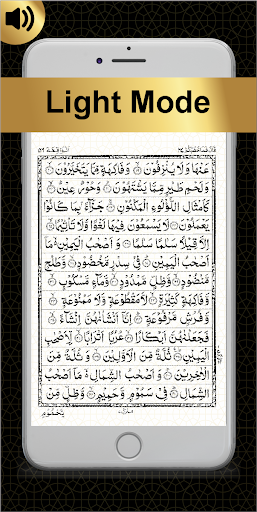 Light Mode
قال فما خطبكم ٢٧
الواقعة ٥٦
عَنْهَا وَلَا يُنْزِفُوْنَ ۙ وَفَاكِهَةٍ مِّمَّا يَتَخَيَّرُوْنَ ۙ
وَلَحْمِ طَيْرٍ مِّمَّا يَشْتَهُوْنَ ؕ وَحُوْرٌ عِيْنٌ ۙ
كَاَمْثَالِ اللُّؤْلُؤِ الْمَكْنُوْنِ ۚ جَزَآءًۢ بِمَا كَانُوْا
يَعْمَلُوْنَ لَا يَسْمَعُوْنَ فِيْهَا لَغْوًا وَّلَا تَاْثِيْمًا ۙ
اِلَّا قِيْلًا سَلٰمًا سَلٰمًا وَاَصْحٰبُ الْيَمِيْنِ ۙ مَاۤ
اَصْحٰبُ الْيَمِيْنِ ؕ فِيْ سِدْرٍ مَّخْضُوْدٍ ۙ وَّطَلْحٍ
مَّنْضُوْدٍ ۙ وَّظِلٍّ مَّمْدُوْدٍ ۙ وَّمَآءٍ مَّسْكُوْبٍ ۙ
وَّفَاكِهَةٍ كَثِيْرَةٍ ۙ لَّا مَقْطُوْعَةٍ وَّلَا مَمْنُوْعَةٍ ۙ
وَّفُرُشٍ مَّرْفُوْعَةٍ ؕ اِنَّاۤ اَنْشَاْنٰهُنَّ اِنْشَآءً ۙ
فَجَعَلْنٰهُنَّ اَبْكَارًا ۙ عُرُبًا اَتْرَابًا ۙ لِّاَصْحٰبِ
الْيَمِيْنِ ؕ ثُلَّةٌ مِّنَ الْاَوَّلِيْنَ ۙ وَثُلَّةٌ مِّنَ
الْاٰخِرِيْنَ ؕ وَاَصْحٰبُ الشِّمَالِ ۙ مَاۤ اَصْحٰبُ
الشِّمَالِ ؕ فِيْ سَمُوْمٍ وَّحَمِيْمٍ ۙ وَّظِلٍّ مِّنْ
يَّحْمُوْمٍ